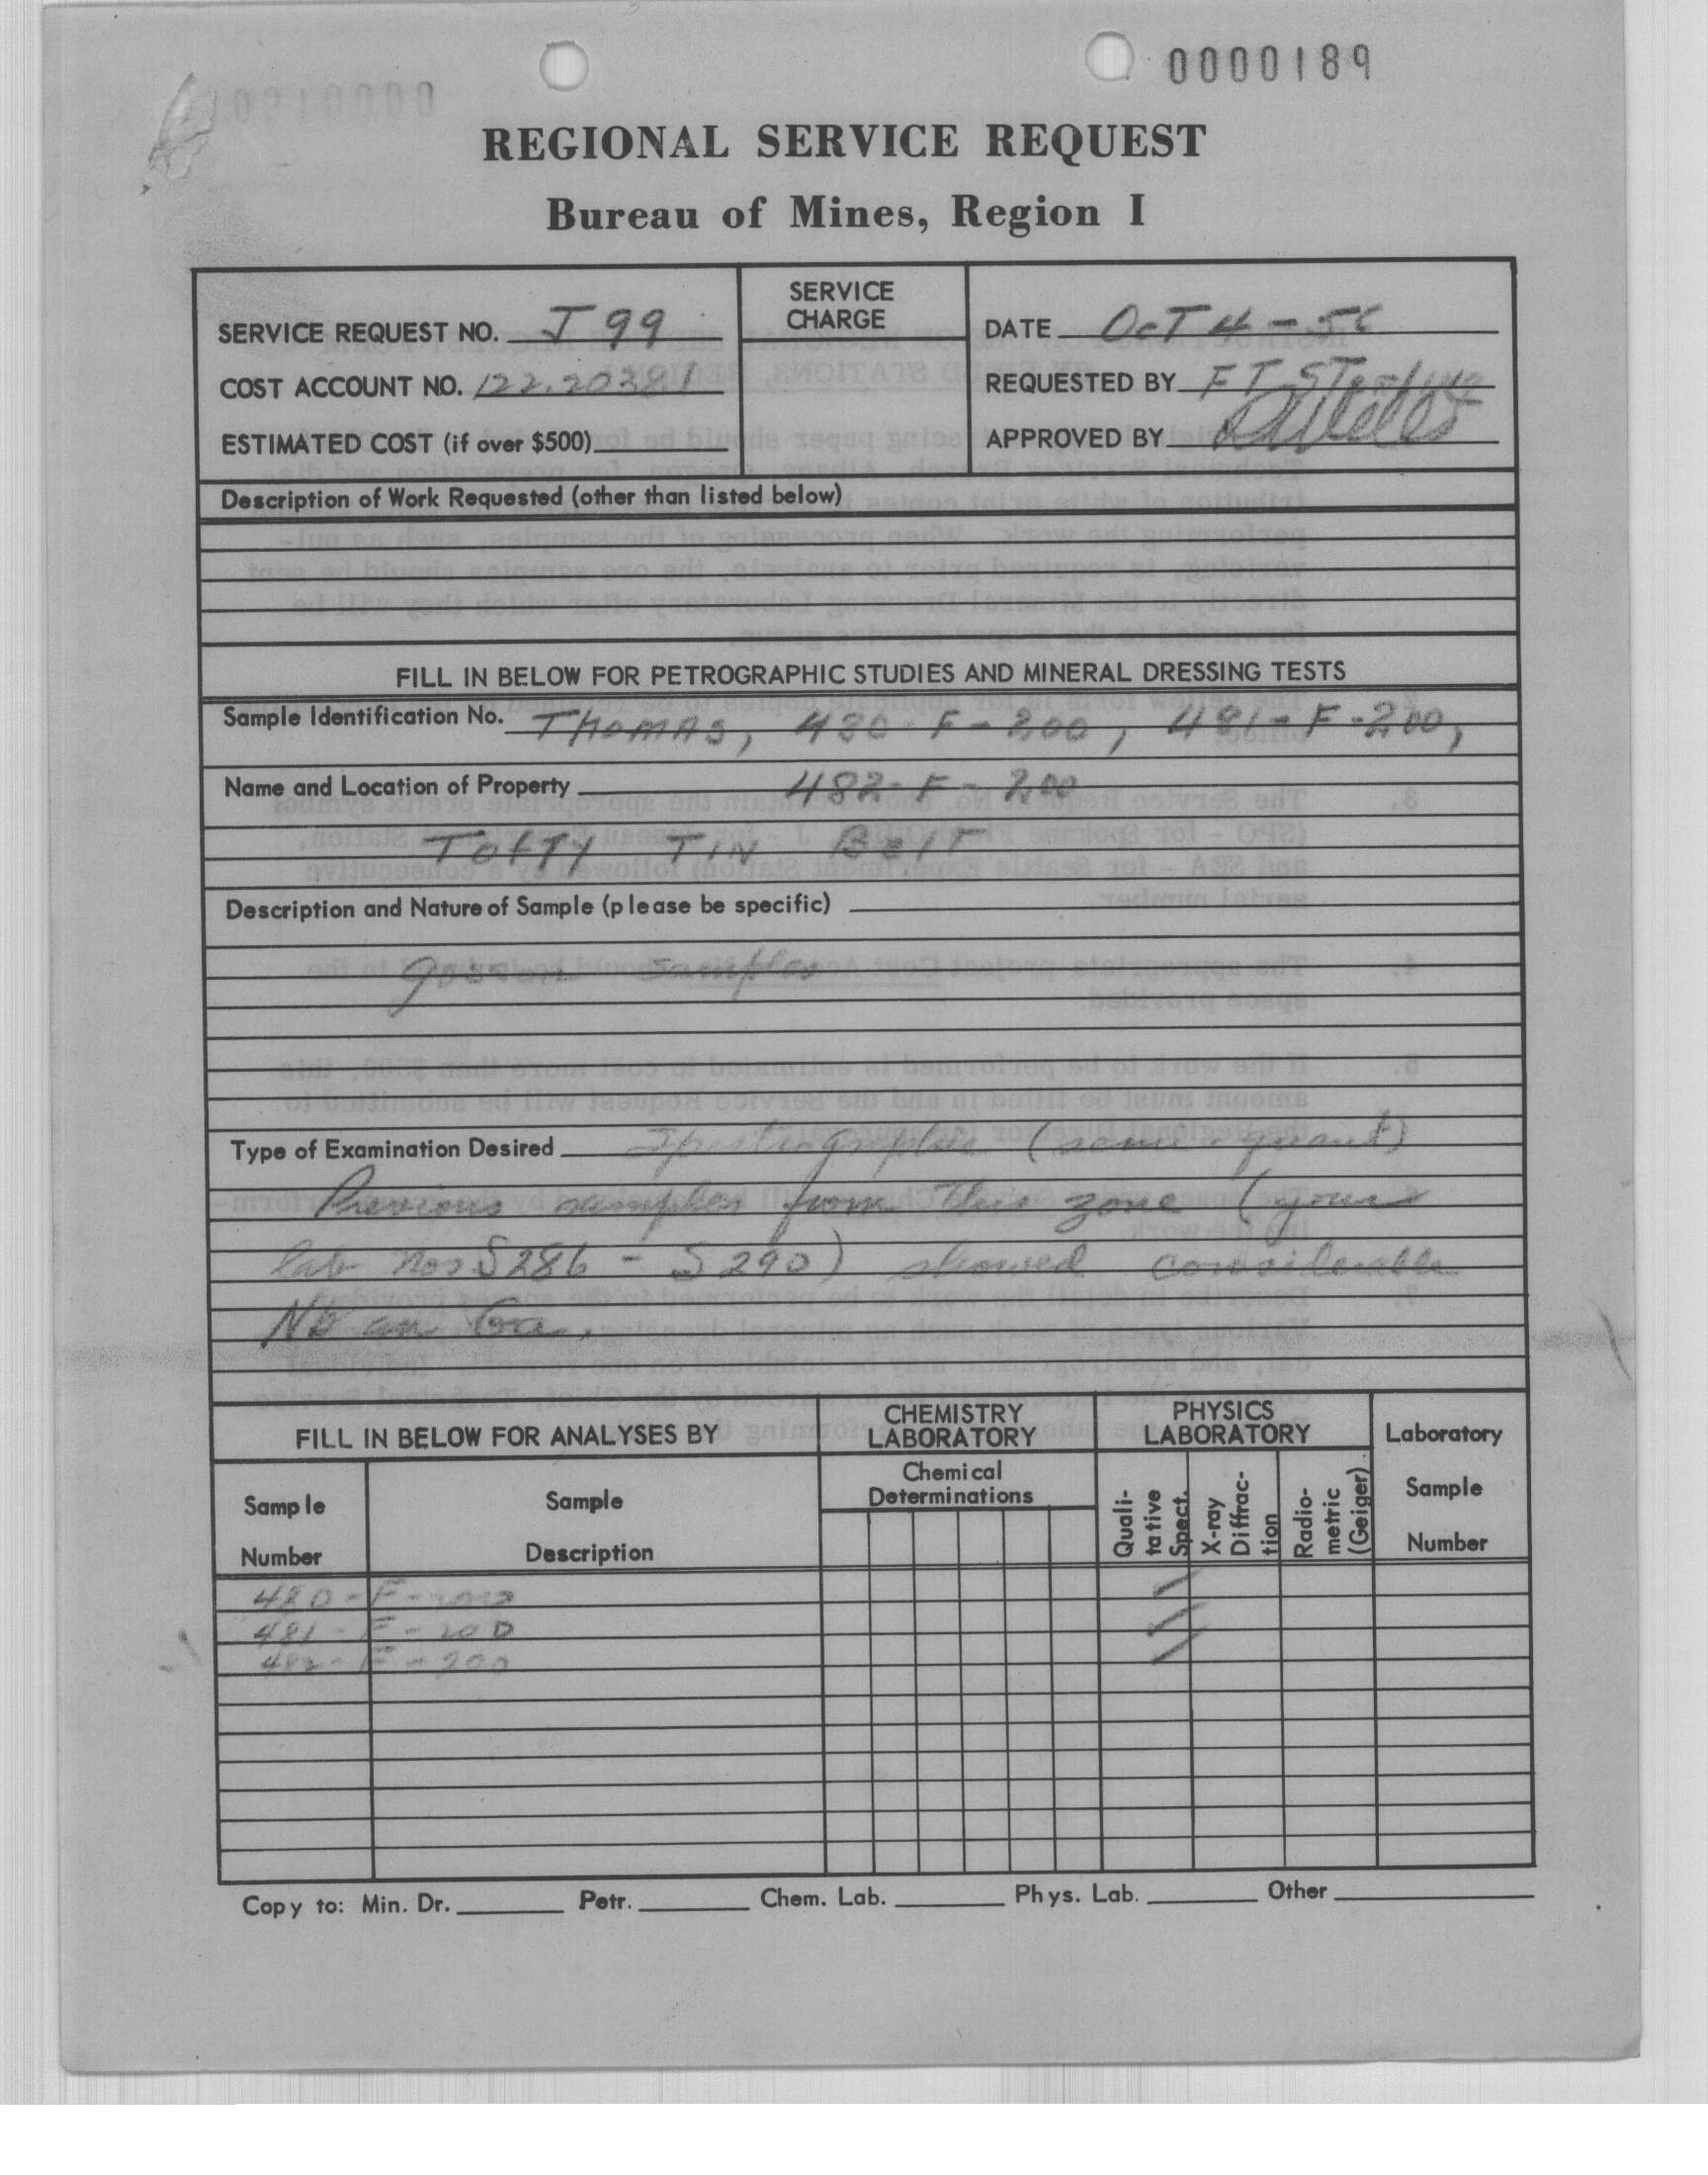 0000189
REGIONAL SERVICE REQUEST
Bureau of Mines, Region I
SERVICE REQUEST NO. J 99
COST ACCOUNT NO. 122.20381
ESTIMATED COST (if over $500)
SERVICE
CHARGE
DATE Oct 4 - 56
REQUESTED BY F T
APPROVED BY
Description of Work Requested (other than listed below)
FILL IN BELOW FOR PETROGRAPHIC STUDIES AND MINERAL DRESSING TESTS
Sample Identification No. THOMAS, 480-F-200, 481-F-200,
Name and Location of Property 482-F-200
Tofty Tin Belt
Description and Nature of Sample (please be specific)
gossan samples
Type of Examination Desired Spectrographic (semi-quant)
Previous samples from this zone (your
lab nos S286 - S290) showed considerable
Nb an Ga.
FILL IN BELOW FOR ANALYSES BY
CHEMISTRY
LABORATORY
PHYSICS
LABORATORY
Laboratory
Sample
Number
Sample
Number
Sample
Description
Chemical
Determinations
Quali-
tative
Spect.
X-ray
Diffrac-
tion
Radio-
metric
(Geiger)
480-F-200
481-F-200
482-F-200
Copy to: Min. Dr. Petr. Chem. Lab. Phys. Lab. Other